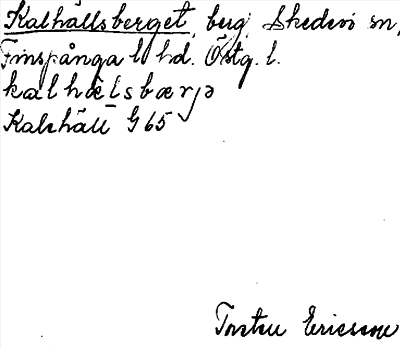 Kalhällsberget, berg, Skedevi sn,
Finspånga l hd. Östg. l.
kalhælsbærjə
Kalhäll G 65
Torsten Ericsson